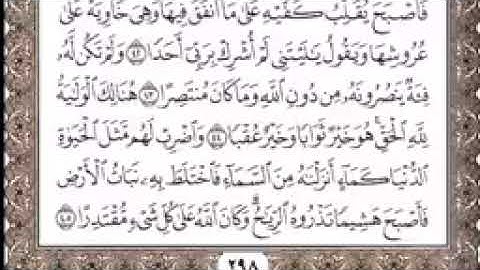 فَأَصْبَحَ يُقَلِّبُ كَفَّيْهِ عَلَىٰ مَا أَنفَقَ فِيهَا وَهِىَ خَاوِيَةٌ عَلَىٰ
عُرُوشِهَا وَيَقُولُ يَٰلَيْتَنِى لَمْ أُشْرِكْ بِرَبِّىٓ أَحَدًا ٤٢ وَلَمْ تَكُن لَّهُۥ
فِئَةٌ يَنصُرُونَهُۥ مِن دُونِ ٱللَّهِ وَمَا كَانَ مُنتَصِرًا ٤٣ هُنَالِكَ ٱلْوَلَٰيَةُ
لِلَّهِ ٱلْحَقِّ ۚ هُوَ خَيْرٌ ثَوَابًا وَخَيْرٌ عُقْبًا ٤٤ وَٱضْرِبْ لَهُم مَّثَلَ ٱلْحَيَوٰةِ
ٱلدُّنْيَا كَمَآءٍ أَنزَلْنَٰهُ مِنَ ٱلسَّمَآءِ فَٱخْتَلَطَ بِهِۦ نَبَاتُ ٱلْأَرْضِ
فَأَصْبَحَ هَشِيمًا تَذْرُوهُ ٱلرِّيَٰحُ ۗ وَكَانَ ٱللَّهُ عَلَىٰ كُلِّ شَىْءٍ مُّقْتَدِرًا ٤٥
٢٩٨